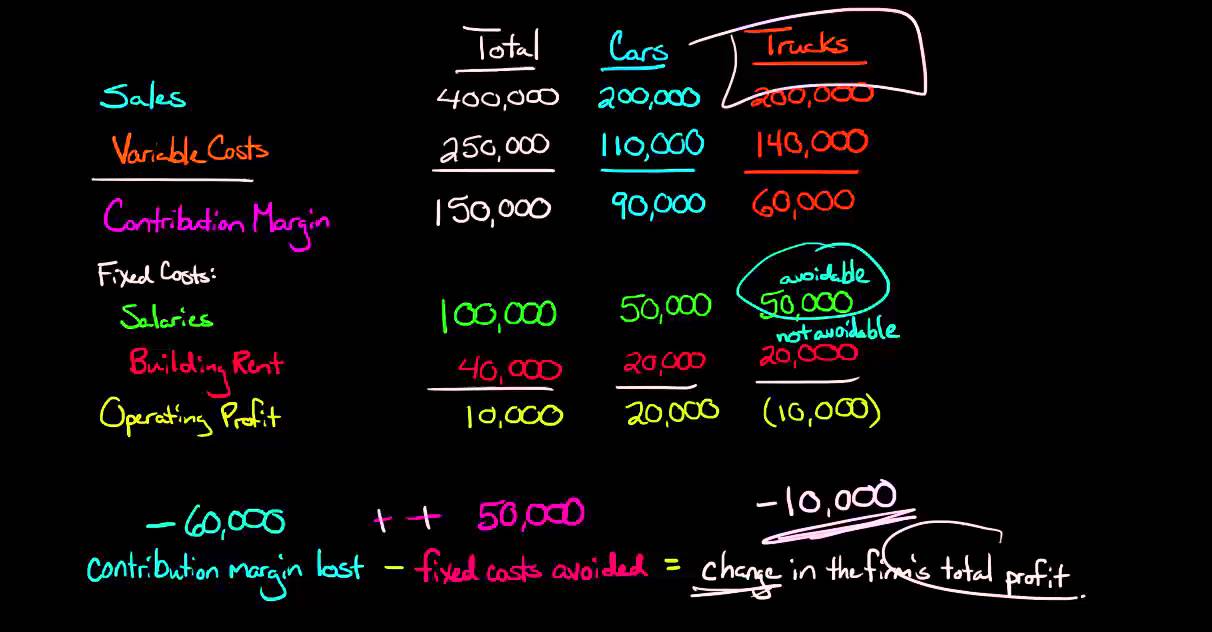 Total Cars Trucks
Sales 400,000 200,000 200,000
Variable Costs 250,000 110,000 140,000
Contribution Margin 150,000 90,000 60,000
Fixed Costs: avoidable
Salaries 100,000 50,000 50,000
not avoidable
Building Rent 40,000 20,000 20,000
Operating Profit 10,000 20,000 (10,000)
-60,000 + + 50,000 -10,000
contribution margin lost - fixed costs avoided = change in the firm's total profit.